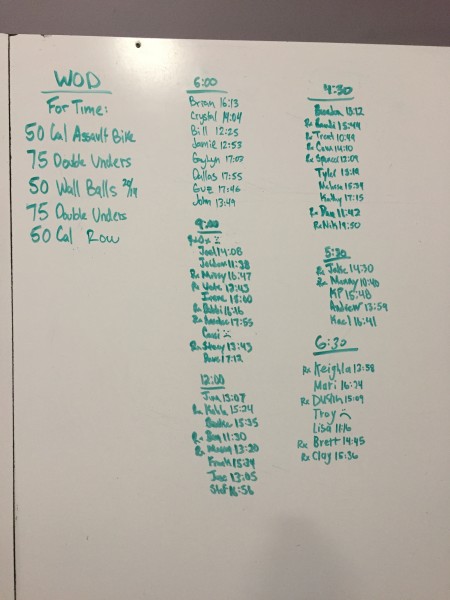 WOD
For Time:
50 Cal Assault Bike
75 Double Unders
50 Wall Balls 20/14
75 Double Unders
50 Cal Row
6:00
Brian 16:13
Crystal 14:04
Bill 12:25
Jamie 12:53
17:02
Dallas 17:55
Gue 17:46
John 13:49
9:00
Joel 14:08
11:38
Rx Missy 16:47
Rx 12:43
Irene 15:00
Rx Robbi
Rx 17:55
Cassi
Rx Stacy 13:43
Dave 17:12
12:00
Jim 13:07
Rx 15:24
15:35
Rx Ben 11:30
Rx Manny 13:20
Frank 15:34
Jose 13:05
Stef 16:56
4:30
Brandon 13:12
Rx 15:44
Rx Trent 10:49
Rx 14:10
Rx Spencer 12:09
Tyler 13:19
Melissa 15:39
Kathy 17:15
Rx 11:42
Rx Nick 19:50
5:30
Rx Jake 14:30
Rx Manny 10:48
KP 15:48
Andrew 13:59
16:41
6:30
Rx Keighla 12:58
Mari 16:24
Rx Dustin 15:09
Troy
Lisa 11:16
Rx Brett 14:45
Rx Clay 15:36